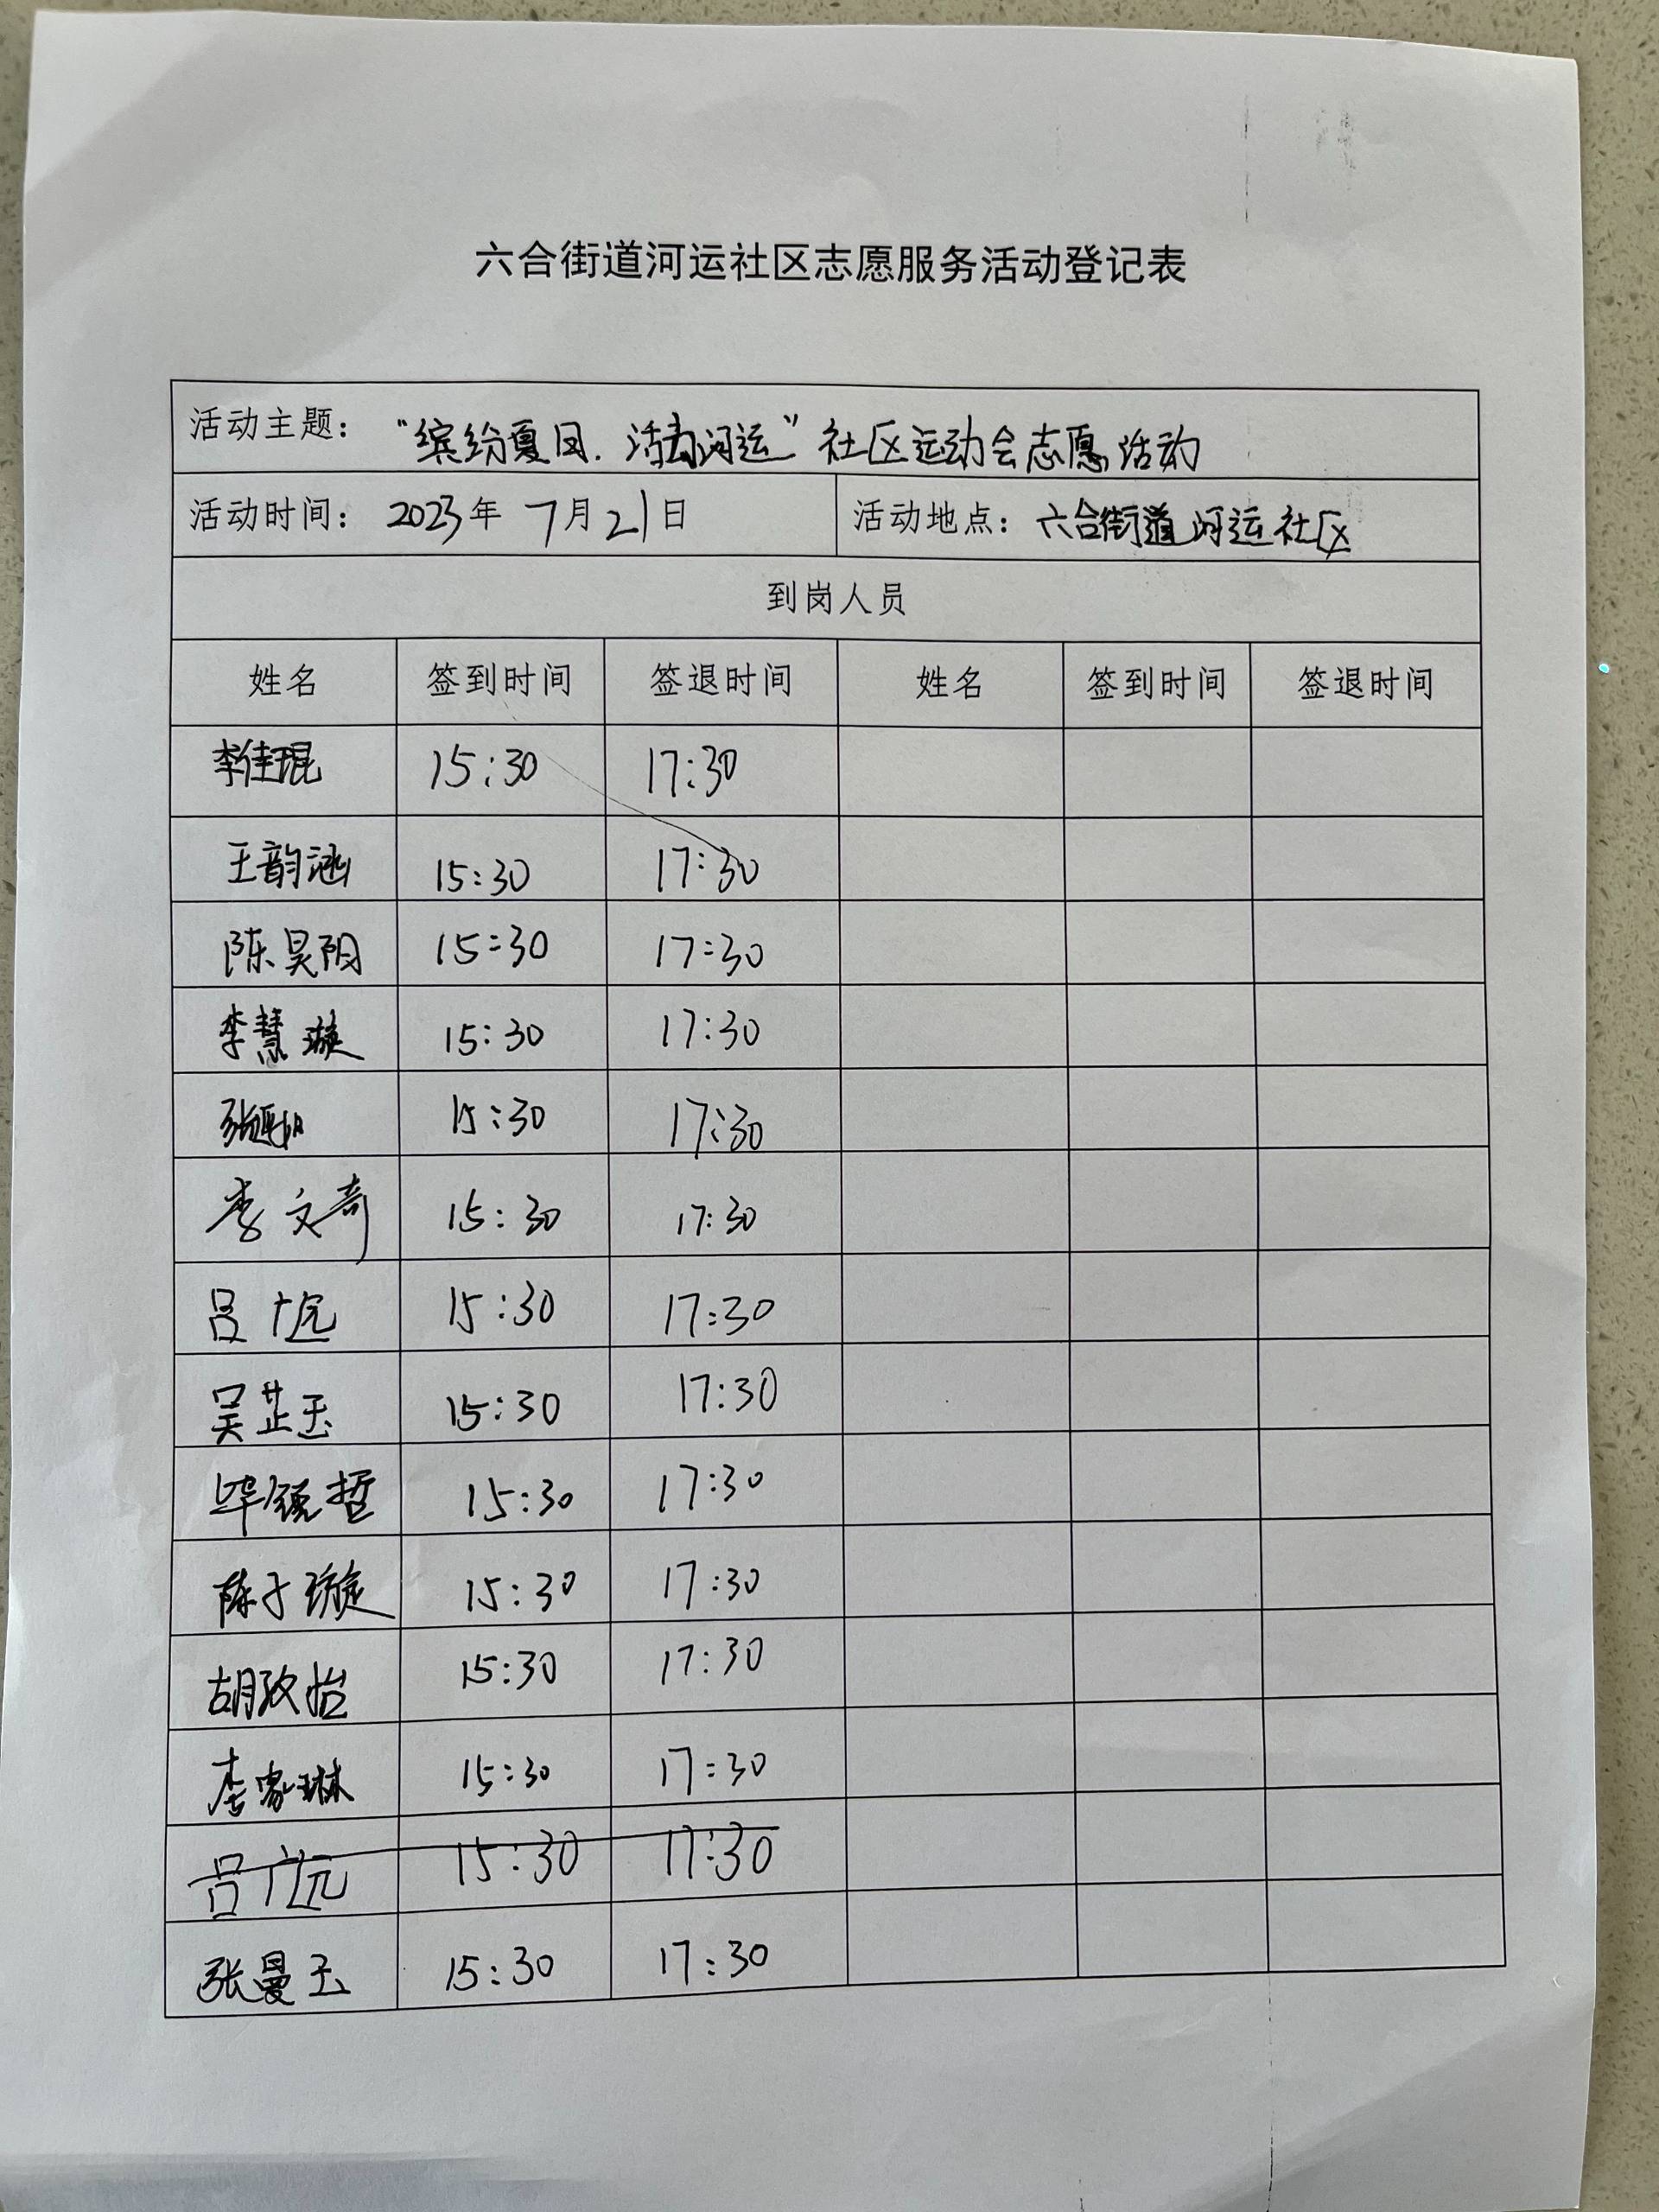 六合街道河运社区志愿服务活动登记表
活动主题： “缤纷夏日.活动河运”社区运动会志愿活动
活动时间： 2023年 7月21日 活动地点： 六合街道河运社区
到岗人员
姓名 签到时间 签退时间 姓名 签到时间 签退时间
李佳琨 15:30 17:30
王韵涵 15:30 17:30
陈昊阳 15:30 17:30
李慧璇 15:30 17:30
15:30 17:30
李文奇 15:30 17:30
吕广远 15:30 17:30
吴芷玉 15:30 17:30
毕锐哲 15:30 17:30
陈子璇 15:30 17:30
胡玫怡 15:30 17:30
李家琳 15:30 17:30
吕广远 15:30 17:30
张曼玉 15:30 17:30